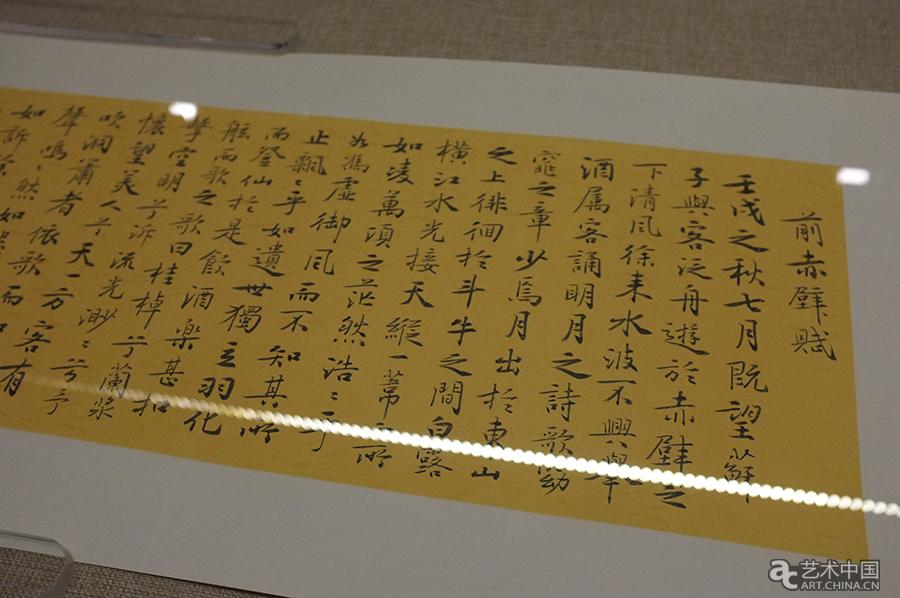 前赤壁賦
壬戌之秋七月既望蘇
子與客泛舟遊於赤壁之
下清風徐来水波不興舉
酒属客誦明月之詩歌窈
窕之章少焉月出於東山
之上徘徊於斗牛之間白露
橫江水光接天縱一葦之所
如凌萬頃之茫然浩〻乎
如馮虛御風而不知其所
止飄〻乎如遺世獨立羽化
而登仙於是飲酒樂甚扣
舷而歌之歌曰桂棹兮蘭槳
擊空明兮泝流光渺〻兮予
懷望美人兮天一方客有
吹洞簫者依歌而和
聲嗚〻然如
如訴
艺术中国
ART.CHINA.CN